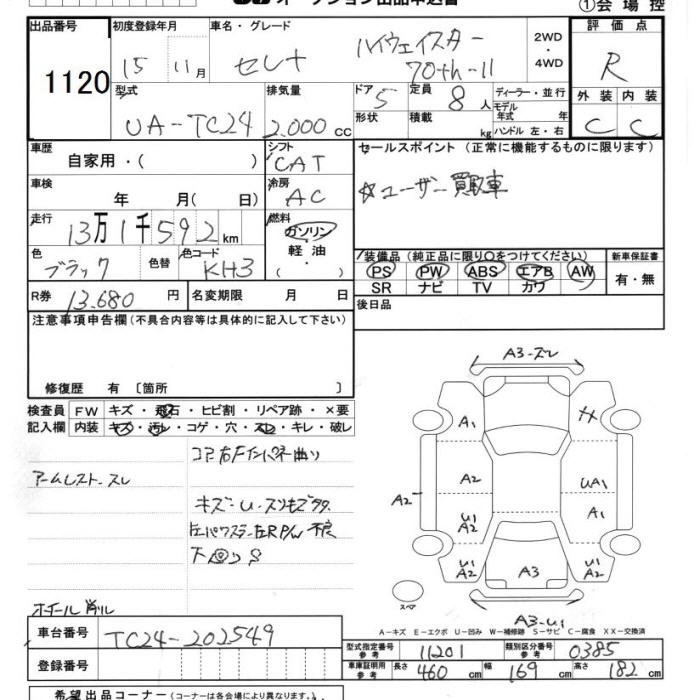 オークション出品申込書 ①会場控
出品番号 1120
初度登録年月 15 11月
車名・グレード セレナ ハイウェイスター 70th-II
2WD・4WD
評価点 R
型式 UA-TC24
排気量 2,000 cc
ドア 5 形状
定員 8人 積載 kg
ディーラー・並行
モデル年式 年
ハンドル 左・右
外装 内装
C C
車歴 自家用・( )
シフト CAT
セールスポイント (正常に機能するものに限ります)
☆ユーザー買取車
車検 年 月(日)
冷房 AC
走行 13万1千592km
燃料 ガソリン 軽油 ( ・ )
色 ブラック 色替 色コード KH3
装備品 (純正品に限り○をつけてください) 新車保証書
PS PW ABS エアB AW 有・無
SR ナビ TV カワ
R券 13.680円 名変期限 月 日
後日品
注意事項申告欄(不具合内容等は具体的に記入して下さい)
修復歴 有 〔箇所 〕
検査員 FW キズ・飛石・ヒビ割・リペア跡・×要
記入欄 内装 キズ・汚レ・コゲ・穴・スレ・キレ・破レ
コア右Fインパネ曲り
アームレスト スレ
キズ・U・スリモゴタタ
左パワステ左RP/W 不良
ホイール削レ
A3-スレ
A1
A2 A2 UA1
A1
U1 A2
U1 A2 A3 U1 A2
スペア
A3-U1
A-キズ E-エクボ U-凹み W-補修跡 S-サビ C-腐食 XX-交換済
車台番号 TC24-202549
型式指定番号 参考 11201 類別区分番号 参考 0385
登録番号
車庫証明用 参考 長さ 460cm 幅 169cm 高さ 182cm
希望出品コーナー (コーナーは各会場により異なります)